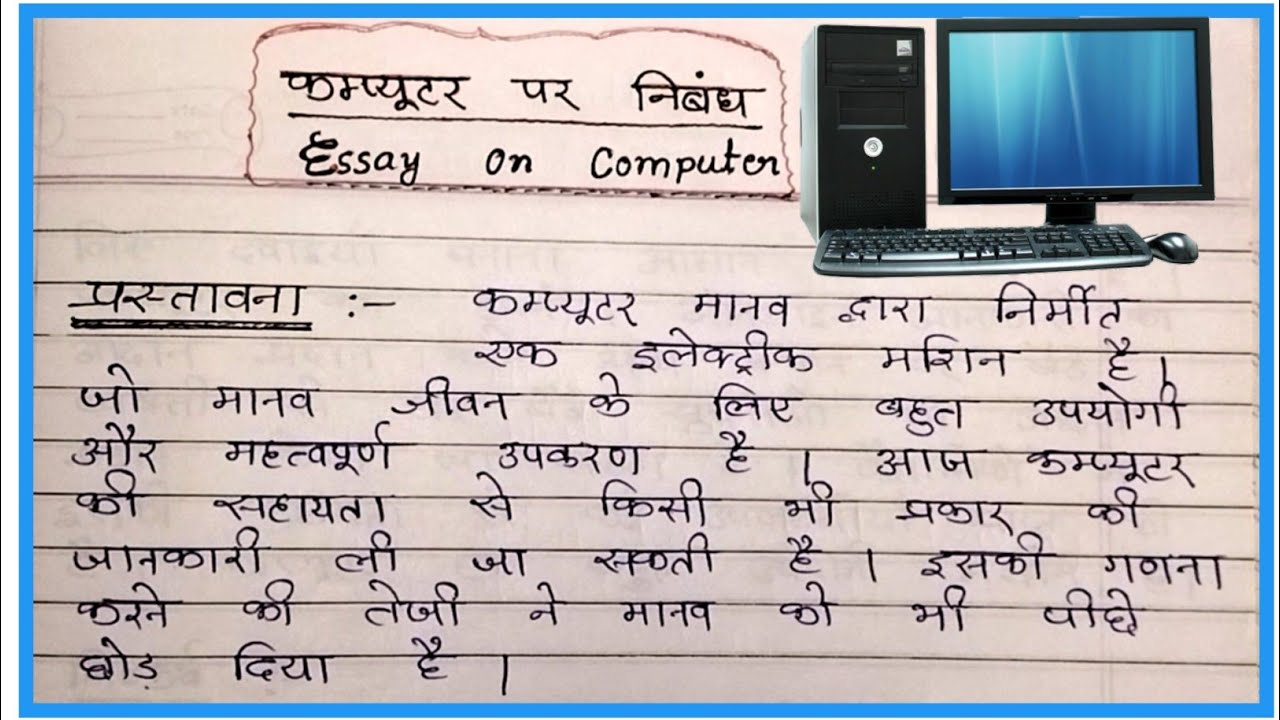 कम्प्यूटर पर निबंध
Essay on Computer
प्रस्तावना :- कम्प्यूटर मानव द्वारा निर्मीत
एक इलेक्ट्रीक मशिन है।
जो मानव जीवन के लिए बहुत उपयोगी
और महत्वपूर्ण उपकरण है। आज कम्प्यूटर
की सहायता से किसी भी प्रकार की
जानकारी ली जा सकती है। इसकी गणना
करने की तेजी ने मानव को भी पीछे
छोड़ दिया है।